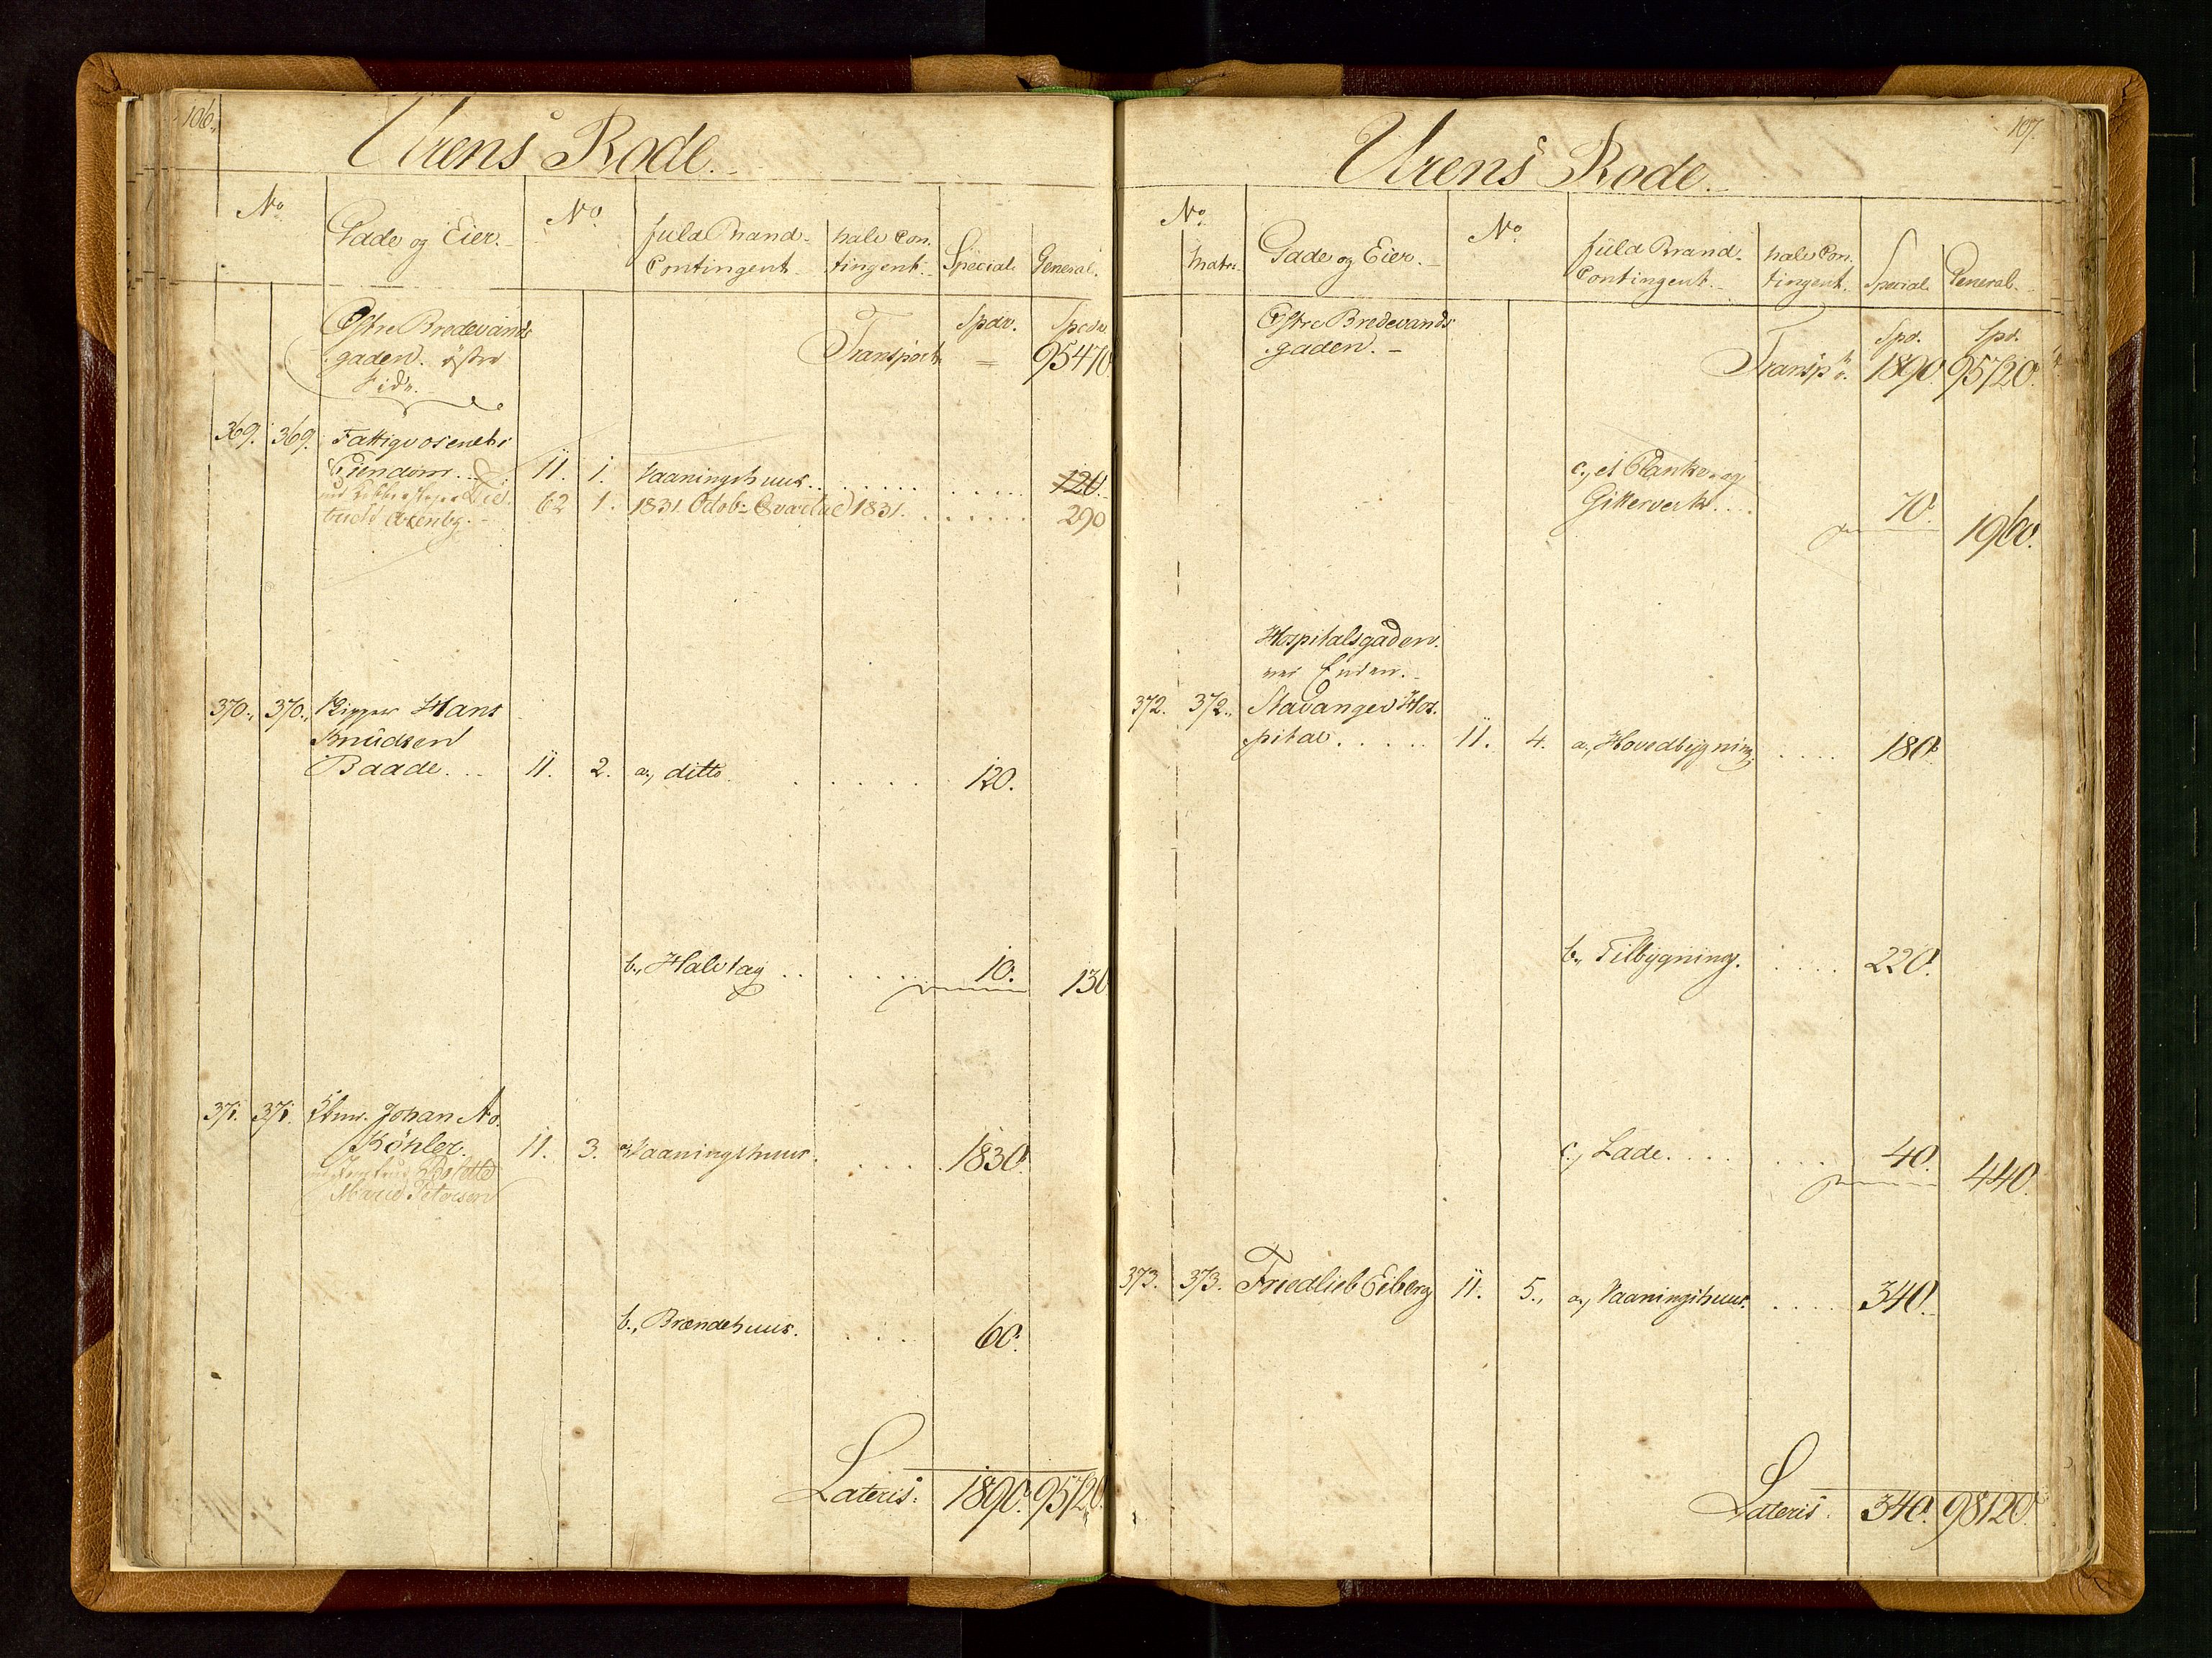 106.
Urens Rode.
No
Gade og Eier.
No
fuld Brand-
Contingent
halv Con-
tingent.
Special.
General.
Østre Bredevands
gaden. östre
Side.
Transport
Spdr.
=
Spdr
95470
369. 369. Fattigvæsenets
Eiendom... 11. 1. Vaaningshuus . . . . . . 120.
62 1. 1831 Octobr 1831. . . . . . . 290
370. 370. Skipper Hans
Knudsen
Baade... 11. 2. a., ditto. . . . . . 120.
b., Halvtag . . . . . 10. 130
371. 371. Johan No.
Köhler. 11. 3. a, Vaaningshuus. . . . . 1830.
Marie Petersen
b., Brændehuus. . . . 60.
Lateris: 1890. 95720.
107.
Urens Rode.
No
Matr.
Gade og Eier.
No
fuld Brand-
Contingent.
halv Con-
tingent.
Special.
General.
Østre Bredevands
gaden. -
Transpt.
Spd.
1890.
Spd.
95720.
c., et Planke- og
Gitterverk... 70. 1960.
Hospitalsgaden.
ved Enden.
372. 372. Stavanger Hos-
pital..... 11. 4. a., Hovedbygning . . . . 180.
b., Tilbygning. . . . . 220.
c., Lade. . . . . . 40. 440.
373. 373. Friedlieb Eiberg 11. 5., a., Vaaningshuus. . . . . 340.
Lateris. 340. 98120.